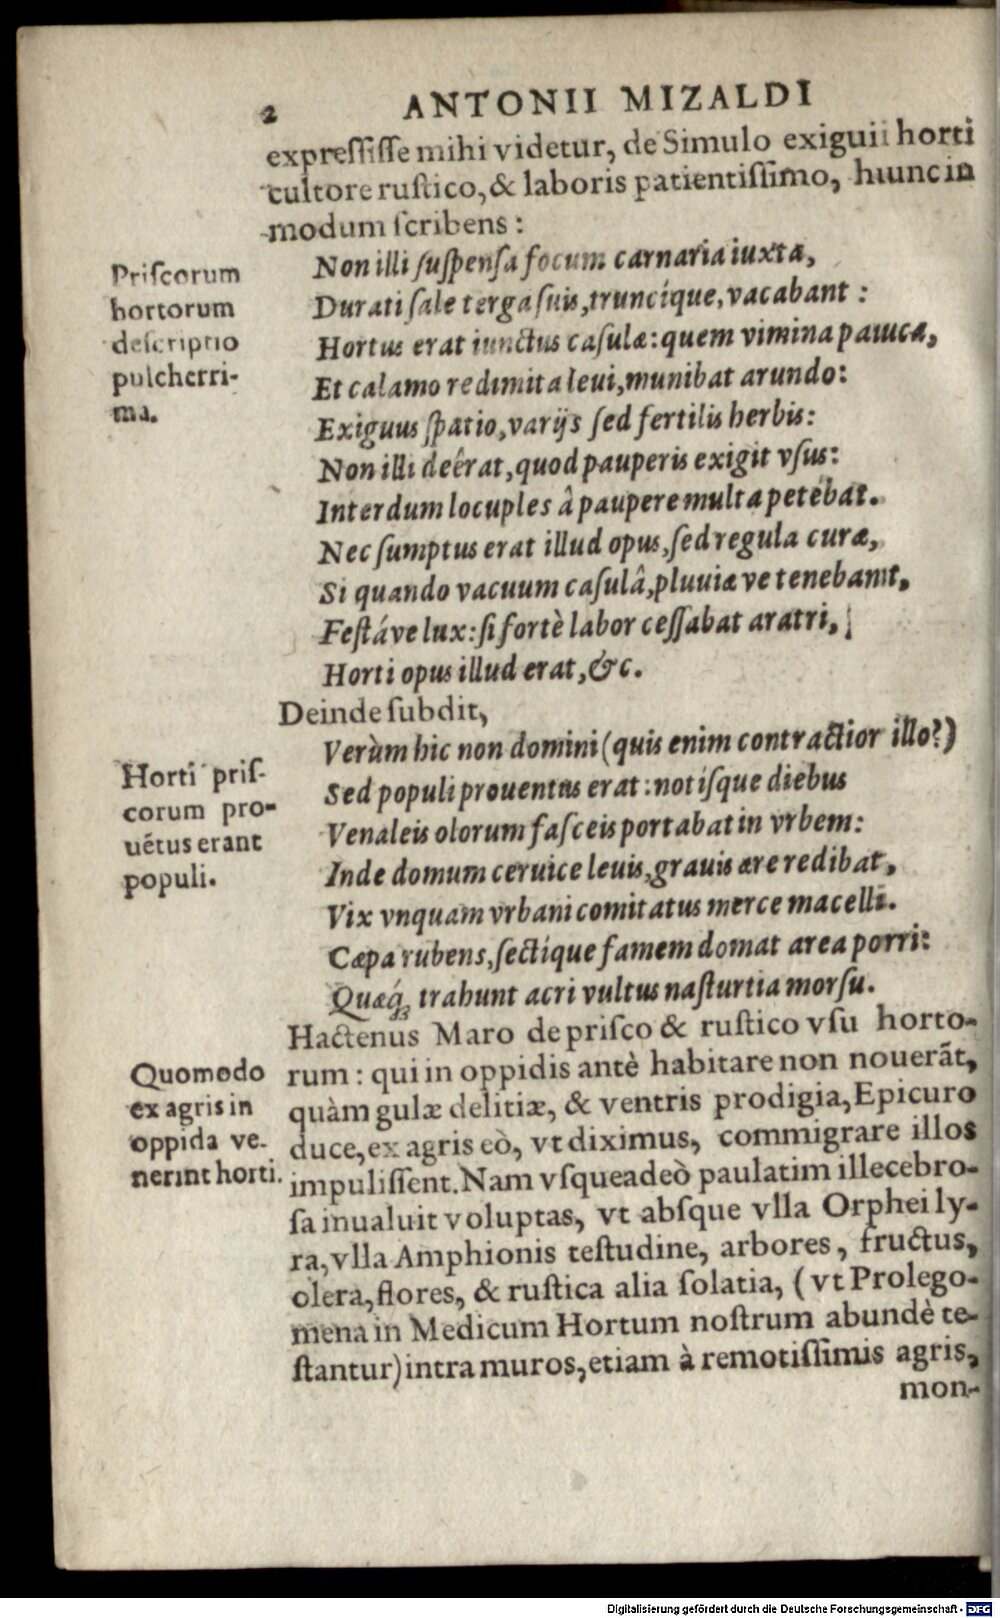 2 ANTONII MIZALDI
expreſſiſſe mihi videtur, de Simulo exiguii horti
cultore ruſtico, & laboris patientiſſimo, hiunc in
modum ſcribens:
Priſcorum
hortorum
deſcriptio
pulcherri-
ma.
Non illi ſuſpenſa focum carnaria iuxta,
Durati ſale terga ſuis, truncíque, vacabant:
Hortus erat iunctus caſulæ: quem vimina pauca,
Et calamo redimita leui, munibat arundo:
Exiguus ſpatio, varijs ſed fertilis herbis:
Non illi deêrat, quod pauperis exigit vſus:
Interdum locuples â paupere multa petebat.
Nec ſumptus erat illud opus, ſed regula curæ,
Si quando vacuum caſulâ, pluuiæ ve tenebant,
Feſtáve lux: ſi fortè labor ceſſabat aratri,
Horti opus illud erat, &c.
Deinde ſubdit,
Horti priſ-
corum pro-
uẽtus erant
populi.
Verùm hic non domini (quis enim contractior illo?)
Sed populi prouentus erat: notíſque diebus
Venaleis olorum faſceis portabat in vrbem:
Inde domum ceruice leuis, grauis ære redibat,
Vix vnquam vrbani comitatus merce macelli.
Cæpa rubens, ſectíque famem domat area porri:
Quæq́ꝫ trahunt acri vultus naſturtia morſu.
Hactenus Maro de priſco & ruſtico vſu horto-
Quomodo
ex agris in
oppida ve-
nerint horti.
rum: qui in oppidis antè habitare non nouerãt,
quàm gulæ delitiæ, & ventris prodigia, Epicuro
duce, ex agris eò, vt diximus, commigrare illos
impuliſſent. Nam vſqueadeò paulatim illecebro-
ſa inualuit voluptas, vt abſque vlla Orphei ly-
ra, vlla Amphionis teſtudine, arbores, fructus,
olera, flores, & ruſtica alia ſolatia, (vt Prolego-
mena in Medicum Hortum noſtrum abundè te-
ſtantur) intra muros, etiam à remotiſſimis agris,
mon-
Digitalisierung gefördert durch die Deutsche Forschungsgemeinschaft - DFG